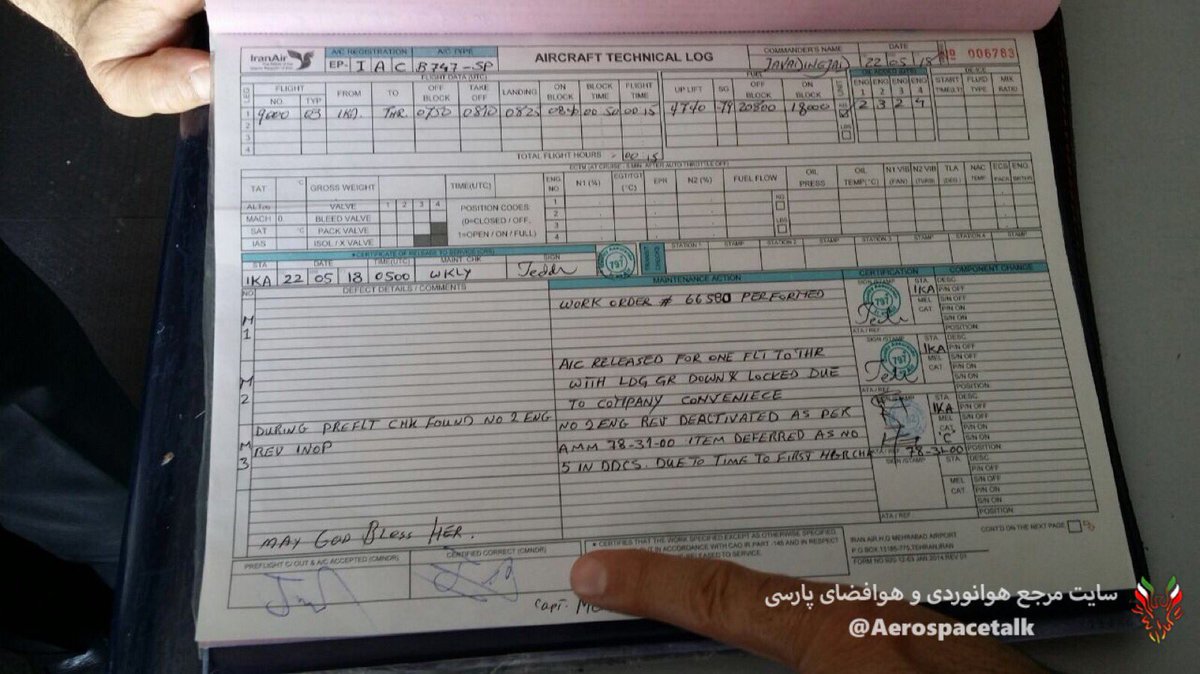 IranAir
A/C REGISTRATION
A/C TYPE
AIRCRAFT TECHNICAL LOG
COMMANDER'S NAME
DATE
No 006783
EP- I A C B747-SP
22 05 18
FLIGHT DATA (UTC)
FUEL
LEG
FLIGHT
NO. TYP
FROM
TO
OFF BLOCK
TAKE OFF
LANDING
ON BLOCK
BLOCK TIME
FLIGHT TIME
UP LIFT
SG
OFF BLOCK
ON BLOCK
ENG 1
ENG 2
ENG 3
ENG 4
START TIME
FLUID TYPE
MIX RATIO
1 9000 03 IKA. THR. 0750 0810 0825 0840 00 50 00 15 4740 .79 20800 18000 2 3 2 4
2
3
4
TOTAL FLIGHT HOURS 00 15
ECTM (AT CRUISE - 5 MIN. AFTER AUTO THROTTLE OFF)
TAT °C GROSS WEIGHT TIME(UTC)
ENG NO
N1 (%)
EGT/TGT (°C)
EPR
N2 (%)
FUEL FLOW
OIL PRESS
OIL TEMP(°C)
N1 VIB (FAN)
N2 VIB (TURB)
TLA (DEG.)
NAC TEMP
VALVE 1 2 3 4 POSITION CODES
MACH 0. BLEED VALVE (0=CLOSED / OFF,
SAT °C PACK VALVE 1=OPEN / ON / FULL)
IAS ISOL / X VALVE
1
2
3
4
KG
LBS
CERTIFICATE OF RELEASE TO SERVICE (CRS)
STA DATE TIME(UTC) MAINT. CHK SIGN
IKA 22 05 18 0500 WKLY
797
STATION 1 STAMP STATION 2 STAMP STATION 3 STAMP STATION 4 STAMP
NO DEFECT DETAILS / COMMENTS
MAINTENANCE ACTION
CERTIFICATION
COMPONENT CHANGE
M 1
WORK ORDER # 66580 PERFORMED
797
IKA
M 2
A/C RELEASED FOR ONE FLT TO THR
WITH LDG GR DOWN & LOCKED DUE
TO COMPANY CONVENIECE
797
IKA
M 3
DURING PREFLT CHK FOUND NO 2 ENG
REV INOP
NO 2 ENG REV DEACTIVATED AS PER
AMM 78-31-00 ITEM DEFERRED AS NO
5 IN DDCS. DUE TO TIME TO FIRST
IKA
'C'
78-31-00
SIGN/STAMP
STA.
MEL
CAT
DESC
P/N OFF
S/N OFF
P/N ON
S/N ON
POSITION
ATA / REF.
MAY GOD BLESS HER.
PREFLIGHT C/OUT & A/C ACCEPTED (CMNDR)
CERTIFIED CORRECT (CMNDR)
CERTIFIES THAT THE WORK SPECIFIED EXCEPT AS OTHERWISE SPECIFIED
IT IN ACCORDANCE WITH CAO.IR PART -145 AND IN RESPECT
RELEASED TO SERVICE.
CONT'D ON THE NEXT PAGE
IRAN AIR.H.Q MEHRABAD AIRPORT
P.O.BOX 13185-775,TEHRAN,IRAN
Capt.
سایت مرجع هوانوردی و هوافضای پارسی
@Aerospacetalk